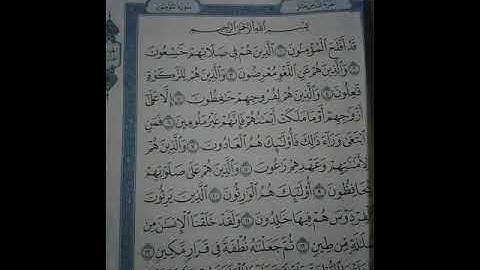 سورة المؤمنون
بسم الله الرحمن الرحيم
قَدْ أَفْلَحَ ٱلْمُؤْمِنُونَ ۝١ ٱلَّذِينَ هُمْ فِى صَلَاتِهِمْ خَٰشِعُونَ
۝٢ وَٱلَّذِينَ هُمْ عَنِ ٱللَّغْوِ مُعْرِضُونَ ۝٣ وَٱلَّذِينَ هُمْ لِلزَّكَوٰةِ
فَٰعِلُونَ ۝٤ وَٱلَّذِينَ هُمْ لِفُرُوجِهِمْ حَٰفِظُونَ ۝٥ إِلَّا عَلَىٰٓ
أَزْوَٰجِهِمْ أَوْ مَا مَلَكَتْ أَيْمَٰنُهُمْ فَإِنَّهُمْ غَيْرُ مَلُومِينَ ۝٦ فَمَنِ
ٱبْتَغَىٰ وَرَآءَ ذَٰلِكَ فَأُو۟لَٰٓئِكَ هُمُ ٱلْعَادُونَ ۝٧ وَٱلَّذِينَ هُمْ
لِأَمَٰنَٰتِهِمْ وَعَهْدِهِمْ رَٰعُونَ ۝٨ وَٱلَّذِينَ هُمْ عَلَىٰ صَلَوَٰتِهِمْ
يُحَافِظُونَ ۝٩ أُو۟لَٰٓئِكَ هُمُ ٱلْوَٰرِثُونَ ۝١٠ ٱلَّذِينَ يَرِثُونَ
ٱلْفِرْدَوْسَ هُمْ فِيهَا خَٰلِدُونَ ۝١١ وَلَقَدْ خَلَقْنَا ٱلْإِنسَٰنَ مِن
سُلَٰلَةٍ مِّن طِينٍ ۝١٢ ثُمَّ جَعَلْنَٰهُ نُطْفَةً فِى قَرَارٍ مَّكِينٍ ۝١٣